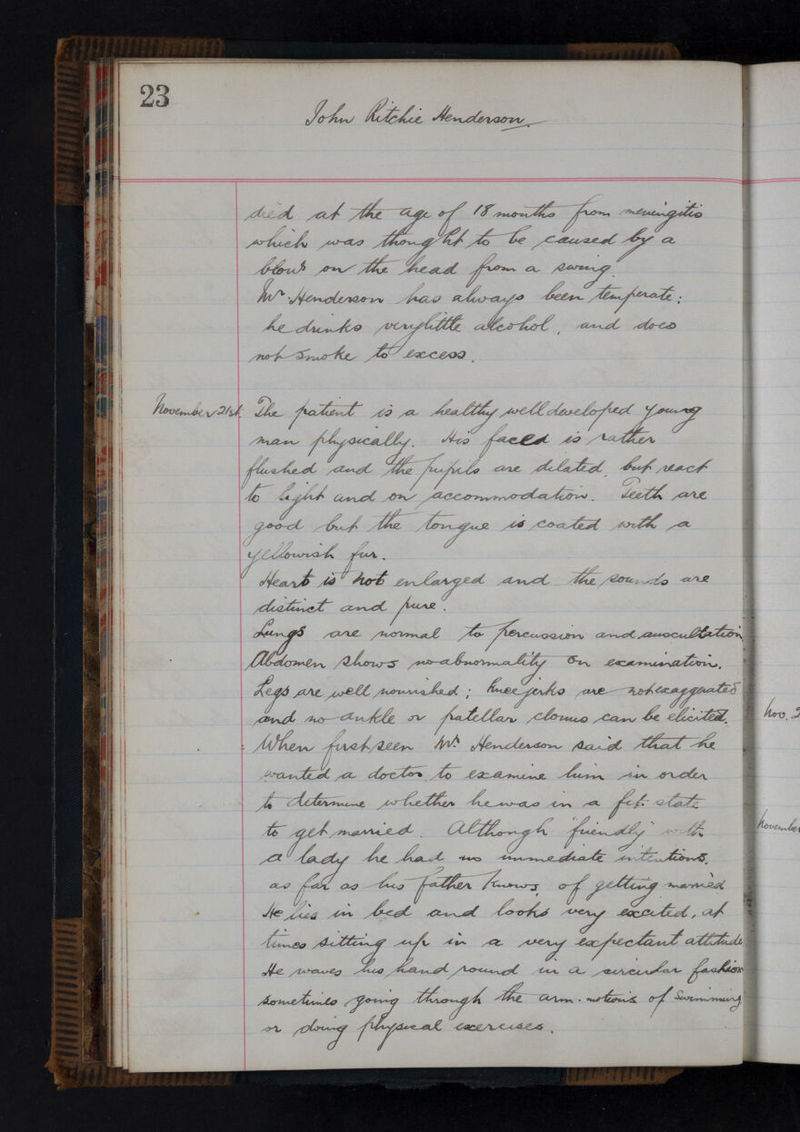 23
John Ritchie Henderson.
died at the age of 18 months from meningitis
which was thought to be caused by a
blow on the head from a swing.
Mr. Henderson has always been temperate;
he drinks very little alcohol, and does
not smoke to excess.
November 21st. The patient is a healthy well developed young
man physically. His face is rather
flushed and the pupils are dilated, but react
to light and on accommodation. Teeth are
good but the tongue is coated with a
yellowish fur.
Heart is not enlarged and the sounds are
distinct and pure.
Lungs are normal to percussion and auscultation
Abdomen shows no abnormality on examination.
Legs are well nourished; knee jerks are not exaggerated
and no ankle or patellar clonus can be elicited.
When first seen Mr. Henderson said that he
wanted a doctor to examine him in order
to determine whether he was in a fit state
to get married. Although "friendly" with
a lady he had no immediate intentions,
as far as his father knows, of getting married
He lies in bed and looks very excited, at
times sitting up in a very expectant attitude
He waves his hand round in a circular fashion
sometimes going through the arm-motions of swimming
or doing physical exercises.
Nov. 2
November